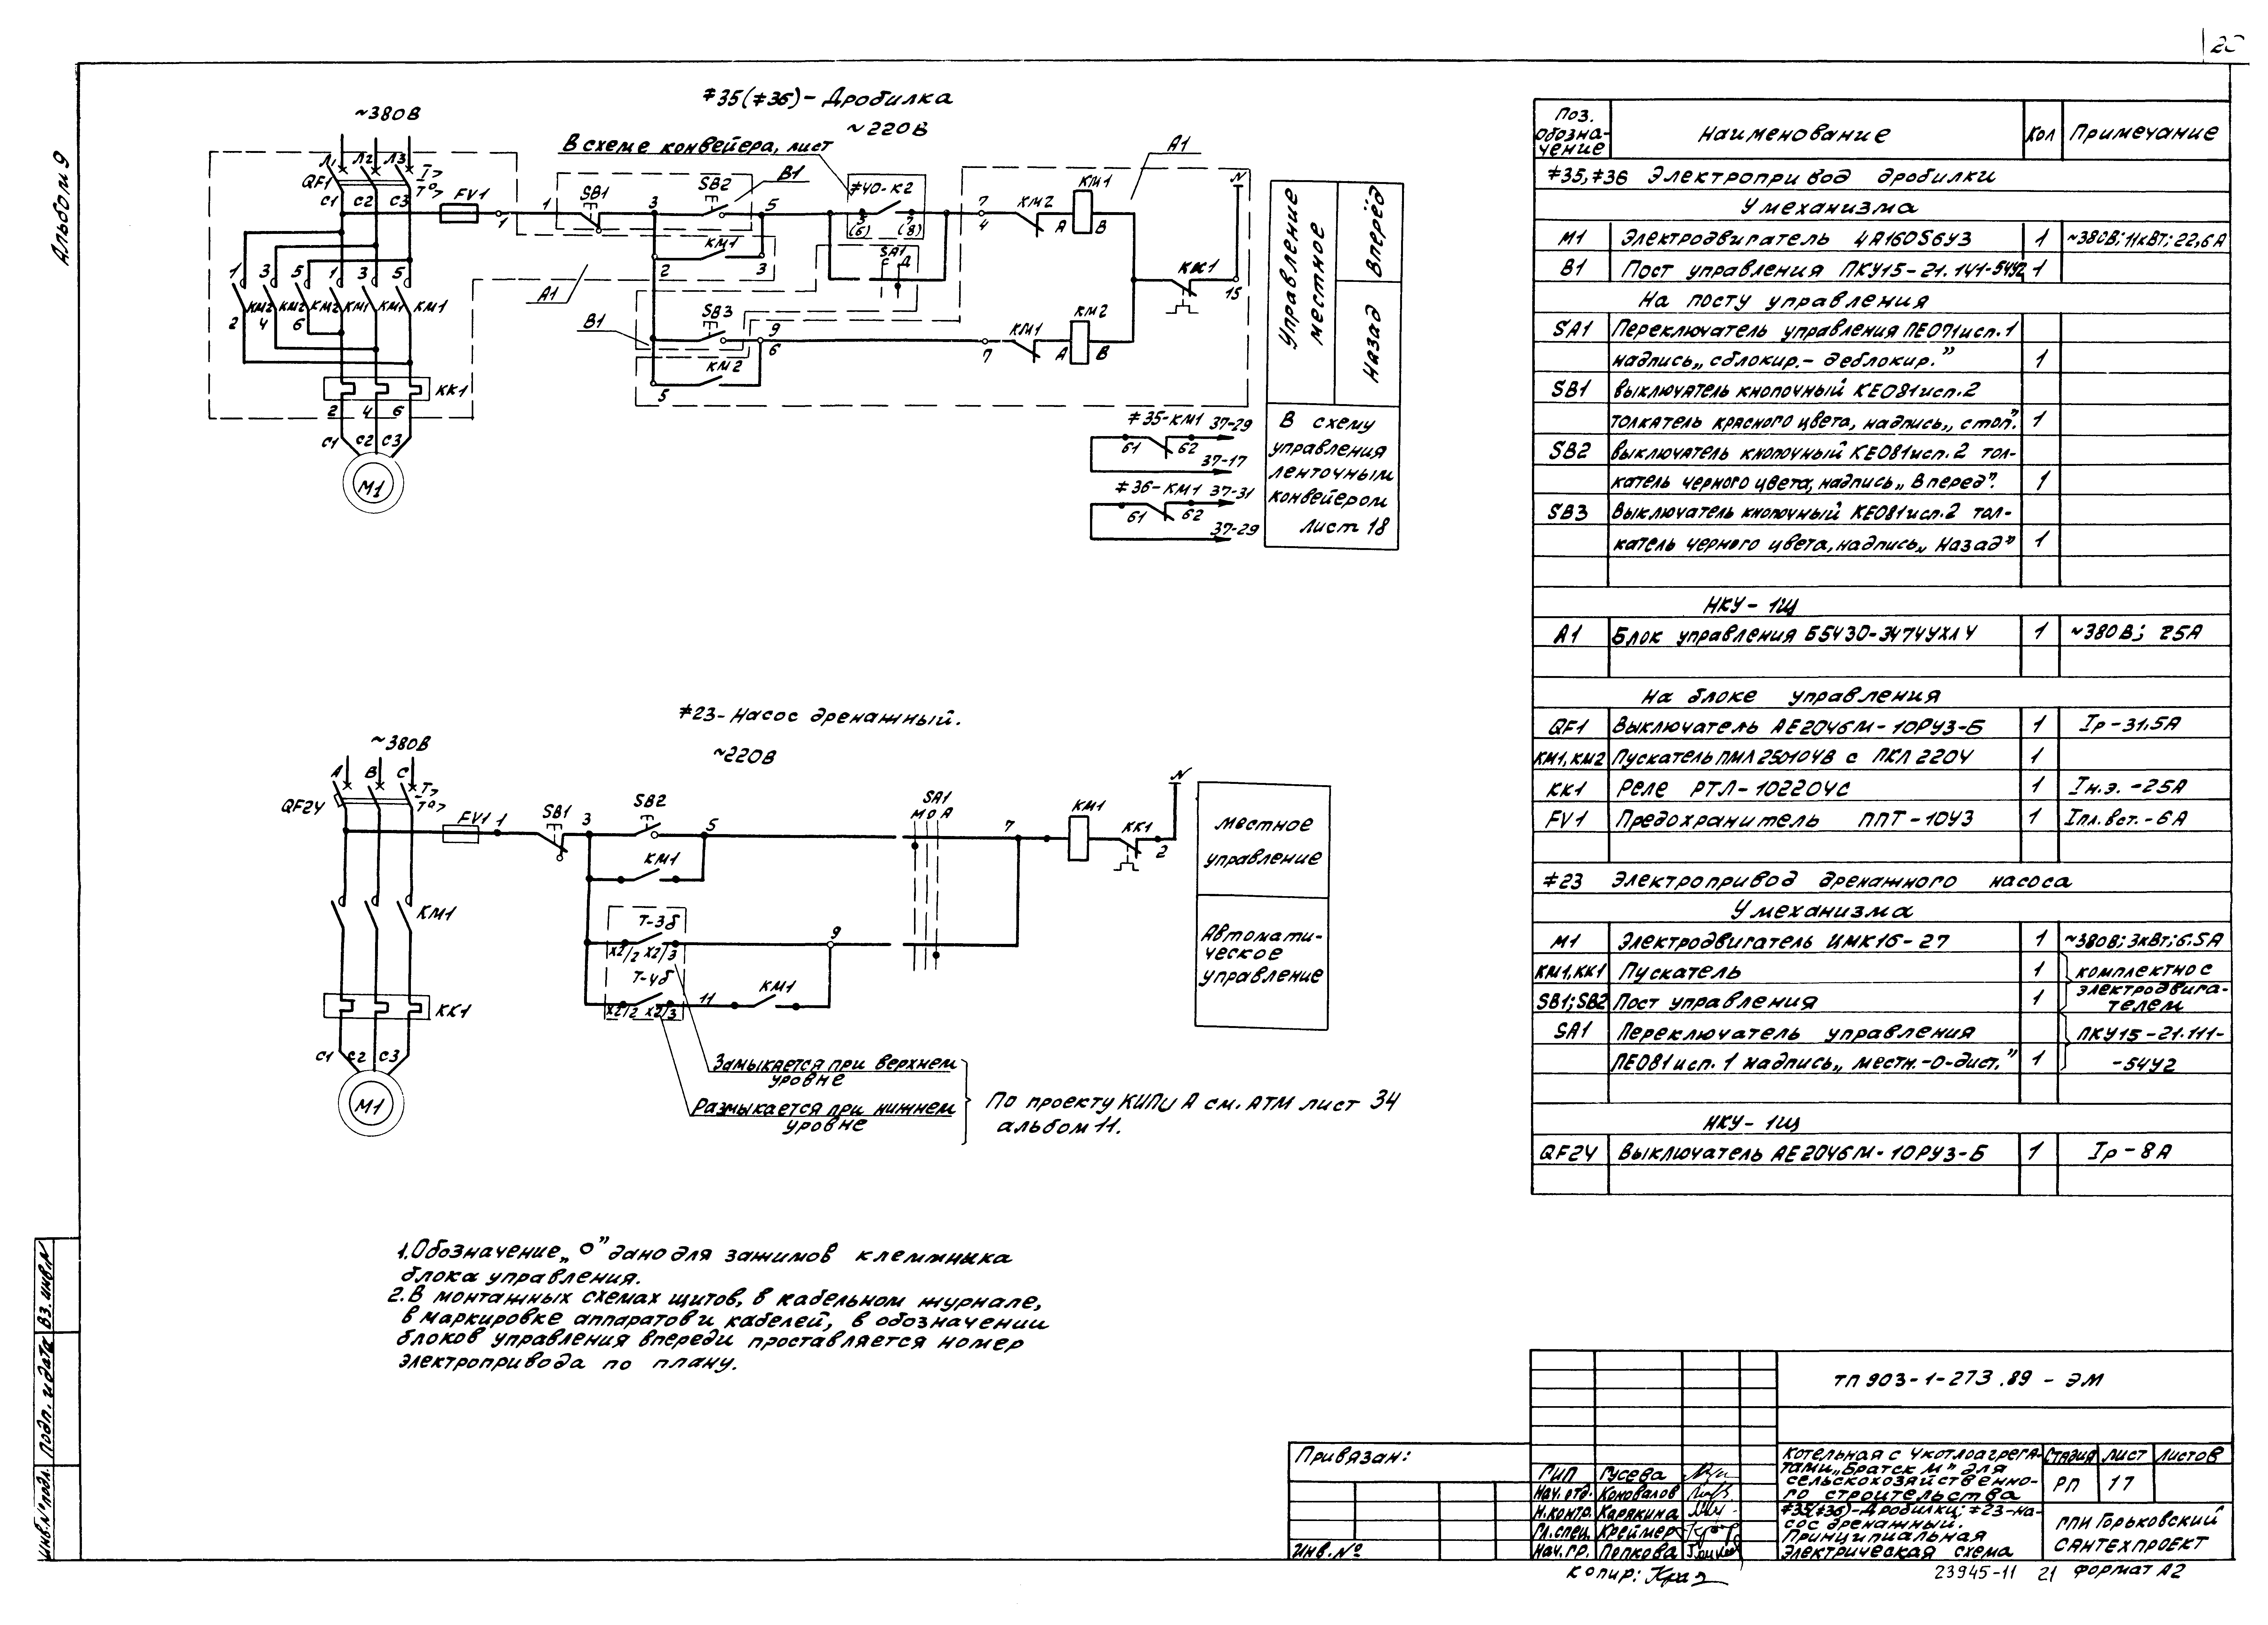 Альбом 9
#35(#36)- Дробилка
~380В
~220В
В схеме конвейера, лист
A1
Л1 Л2 Л3
I>
T°>
QF1
C1 C2 C3
FV1
1
1
SB1
3
SB2
B1
5
#40-K2
5 7
(6) (8)
7
4
KM2
A
KM1
B
N
KM1
2 3
SA1
С Д
A1
B1
SB3
9
6
7
KM1
A
KM2
B
KK1
15
KM2
5
1 3 5 1 3 5
KM2 KM2 KM2 KM1 KM1 KM1
2 4 6
KK1
2 4 6
C1 C2 C3
M1
Управление
местное
Вперёд
Назад
#35-KM1 37-29
61 62
37-17
#36-KM1 37-31
61 62
37-29
В схему
управления
ленточным
конвейером
лист 18
#23- Насос дренажный.
~380В
~220В
A B C
I>
T°>
QF24
FV1 1
SB1
3
SB2
5
SA1
М О А
7
KM1
KK1
2
N
KM1
KM1
T-3б
X2/2 X2/3
9
T-4б
X2/2 X2/3
11
KM1
KK1
C1 C2 C3
M1
местное
управление
Автомати-
ческое
управление
Замыкается при верхнем
уровне
Размыкается при нижнем
уровне
По проекту КИПиА см. АТМ лист 34
альбом 11.
1. Обозначение „ О" дано для зажимов клеммника
блока управления.
2. В монтажных схемах щитов, в кабельном журнале,
в маркировке аппаратов и кабелей, в обозначении
блоков управления впереди проставляется номер
электропривода по плану.
Поз. обозна- чение Наименование Кол Примечание
#35,#36 Электропривод дробилки
У механизма
M1 Электродвигатель 4А160S6У3 1 ~380В; 11кВт; 22,6А
B1 Пост управления ПКУ15-21.141-54У2 1
На посту управления
SA1 Переключатель управления ПЕ071исп.1
надпись „сблокир.- деблокир." 1
SB1 Выключатель кнопочный КЕ081исп.2
толкатель красного цвета, надпись „стоп." 1
SB2 Выключатель кнопочный КЕ081исп.2 тол-
катель черного цвета, надпись „Вперед". 1
SB3 Выключатель кнопочный КЕ081исп.2 тол-
катель черного цвета, надпись „Назад" 1
НКУ-1Щ
A1 Блок управления Б5430-3474УХЛ4 1 ~380В; 25А
На блоке управления
QF1 Выключатель АЕ2046М-10РУ3-Б 1 Iр-31,5А
KM1, KM2 Пускатель ПМЛ 250104В с ПКЛ 2204 1
KK1 Реле РТЛ-102204С 1 Iн.э. -25А
FV1 Предохранитель ППТ-10У3 1 Iпл.вст.-6А
#23 Электропривод дренажного насоса
У механизма
M1 Электродвигатель ЦМК16-27 1 ~380В; 3кВт; 6,5А
KM1, KK1 Пускатель 1 комплектно с
SB1; SB2 Пост управления 1 электродвига- телем
SA1 Переключатель управления ПКУ15-21.111-
ПЕ081исп.1 надпись „местн.-О-дист." 1 -54У2
НКУ-1Щ
QF24 Выключатель АЕ2046М-10РУ3-Б 1 Iр-8А
ТП 903-1-273.89 - ЭМ
Привязан:
Инв. №
ГИП Гусева
Нач. отд. Коновалов
Н.контр. Карякина
Гл.спец. Креймер
Нач.гр. Попкова
Котельная с 4 котлоагрега-
тами „Братск М" для
сельскохозяйственно-
го строительства
Стадия Лист Листов
РП 17
#35(#36)-Дробилки; #23-на-
сос дренажный.
Принципиальная
электрическая схема
ГПИ Горьковский
САНТЕХПРОЕКТ
Копир:
23945-11 21 Формат А2
Инв.№подл. Подп. и дата Вз. инв.N